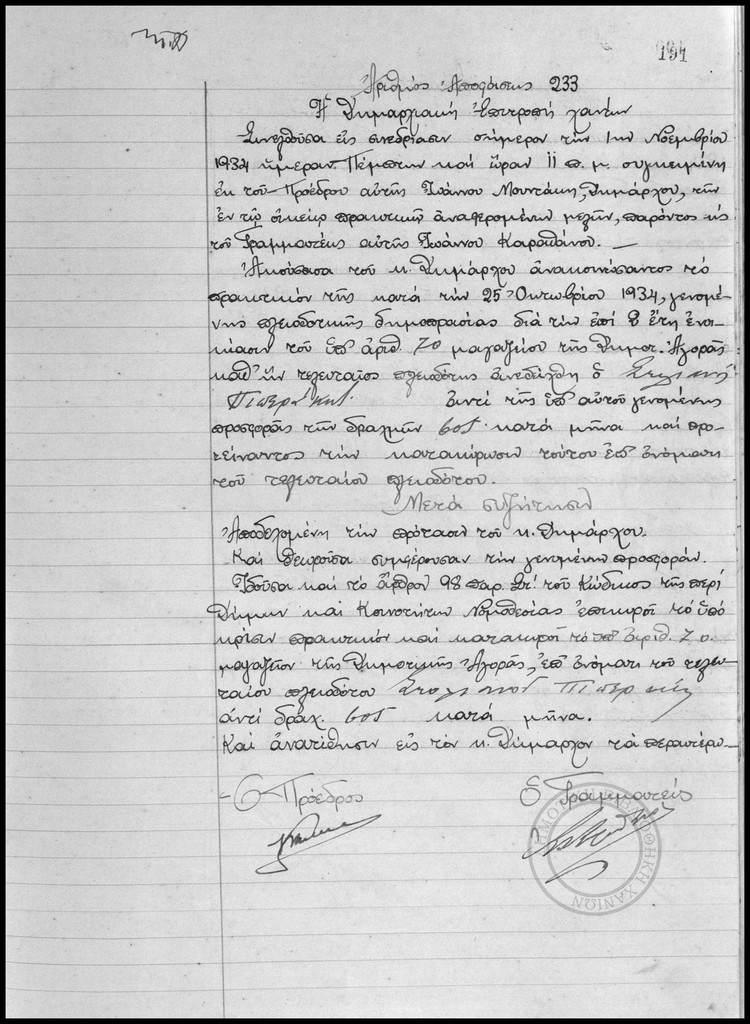 194
Ἀριθμὸς Ἀποφάσεως 233
Ἡ Δημαρχιακὴ Ἐπιτροπὴ Χανίων
Συνελθοῦσα εἰς συνεδρίασιν σήμερον τὴν 1ην Νοεμβρίου
1934 ἡμέραν Πέμπτην καὶ ὥραν 11 π.μ. συγκειμένη
ἐκ τοῦ Προέδρου αὐτῆς Ἰωάννου Μουντάκη, Δημάρχου, τῶν
ἐν τῷ οἰκείῳ πρακτικῷ ἀναφερομένων μελῶν, παρόντος κ
τοῦ Γραμματέως αὐτῆς Ἰωάννου Καραθάνου. —
Ἀκούσασα τοῦ κ. Δημάρχου ἀνακοινώσαντος τὸ
πρακτικὸν τῆς κατὰ τὴν 25 Ὀκτωβρίου 1934, γενομέ-
νης πλειοδοτικῆς δημοπρασίας διὰ τὴν ἐπὶ 2 ἔτη ἐνοι-
κίασιν τοῦ ὑπ' ἀριθ. 70 μαγαζείου τῆς Δημοτ. Ἀγορᾶς
καθ' ἣν τελευταῖος πλειοδότης ἀνεδείχθη ὁ
ἀντὶ τῆς ὑπ' αὐτοῦ γενομένης
προσφορᾶς τῶν δραχμῶν 605 κατὰ μῆνα καὶ προ-
τείναντος τὴν κατακύρωσιν τούτου ἐπ' ὀνόματι
τοῦ τελευταίου πλειοδότου.
Μετὰ συζήτησιν
Ἀποδεχομένη τὴν πρότασιν τοῦ κ. Δημάρχου.
Καὶ θεωροῦσα συμφέρουσαν τὴν γενομένην προσφοράν.
Ἰδοῦσα καὶ τὸ ἄρθρον 98 παρ. ΣΤ' τοῦ Κώδικος τῆς περὶ
Δήμων καὶ Κοινοτήτων Νομοθεσίας ἐπικυροῖ τὸ ὑπὸ
κρίσιν πρακτικὸν καὶ κατακυροῖ τὸ ὑπ' ἀριθ. 70
μαγαζεῖον τῆς Δημοτικῆς Ἀγορᾶς, ἐπ' ὀνόματι τοῦ τελευ-
ταίου πλειοδότου
ἀντὶ δραχ. 605 κατὰ μῆνα.
Καὶ ἀνατίθησιν εἰς τὸν κ. Δήμαρχον τὰ περαιτέρω —
Ὁ Πρόεδρος
Ὁ Γραμματεύς
ΔΗΜΟΤΙΚΗ ΒΙΒΛΙΟΘΗΚΗ ΧΑΝΙΩΝ